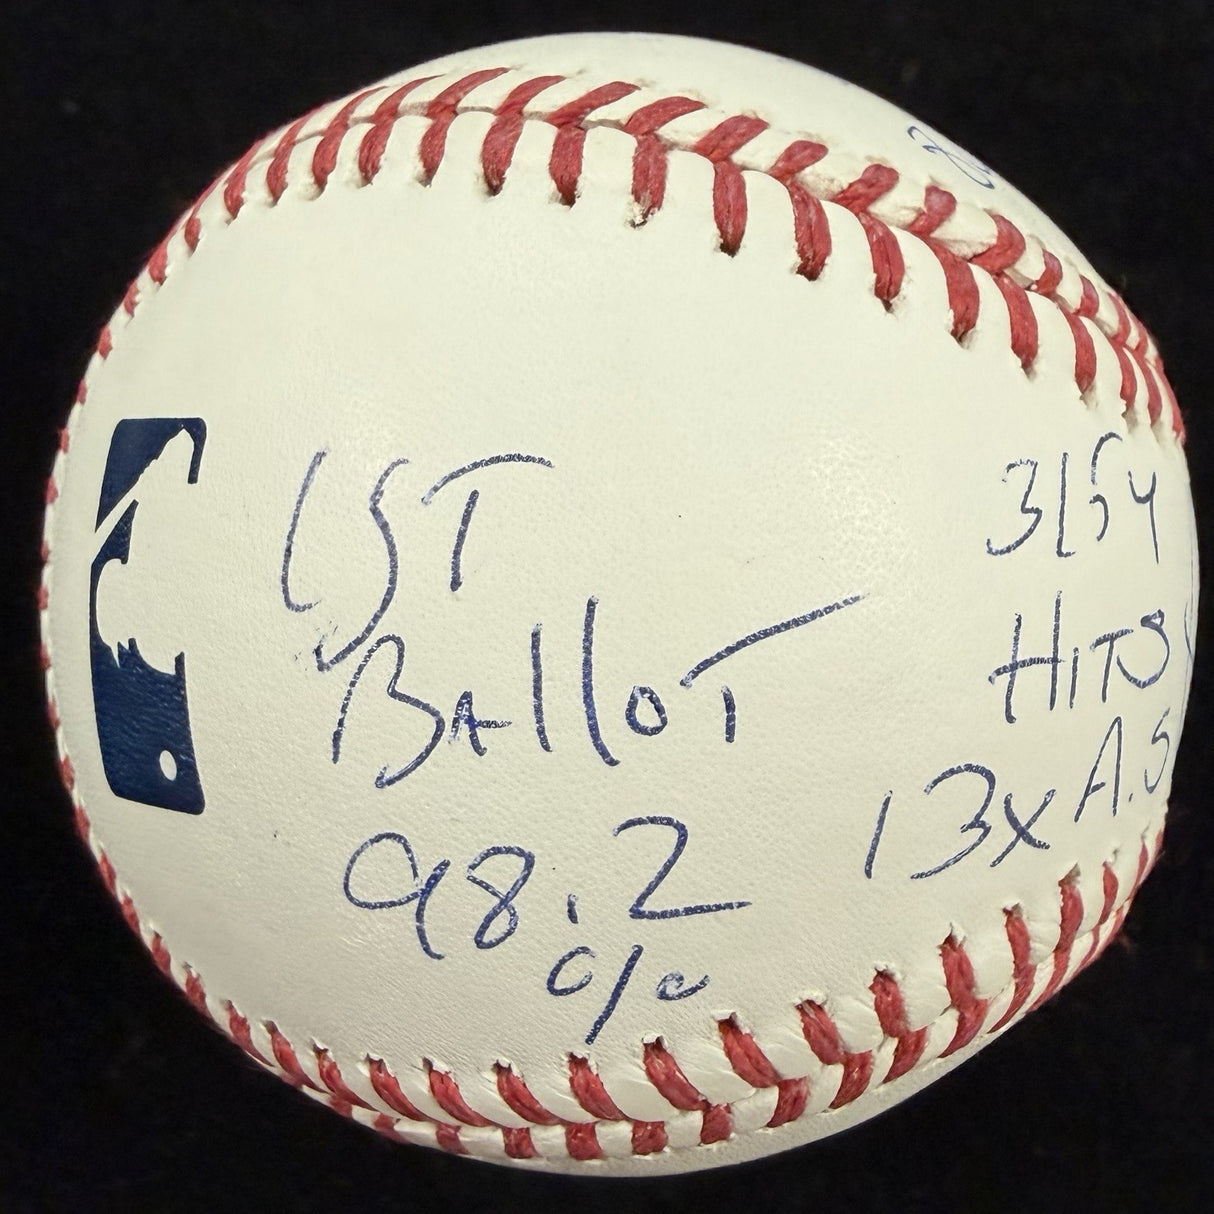 1ST
BALLOT
98.2
%
3154
HITS
13x A.S